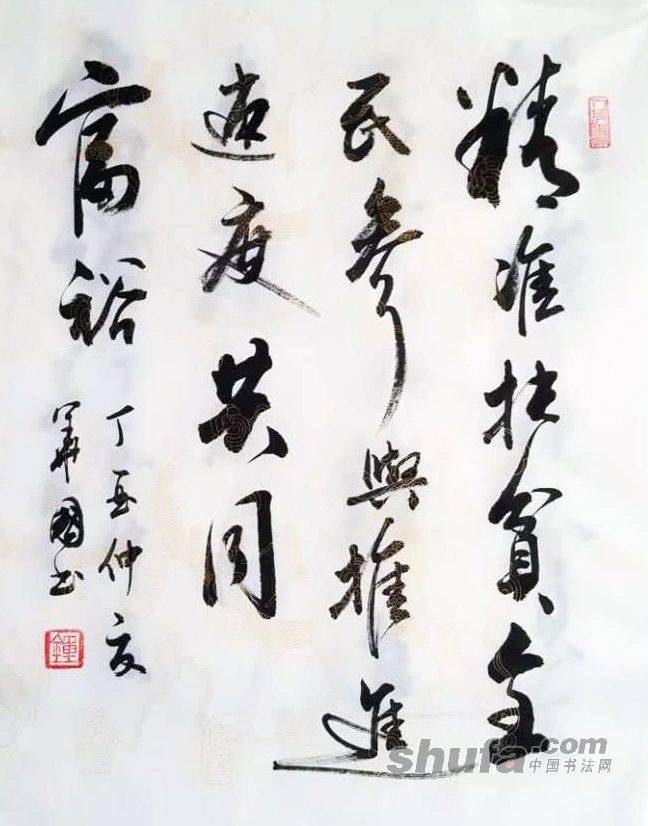 精准扶貧全
民參與推進
速度共同
富裕
丁酉仲夏
華國书
鍾
shufa.com
中国书法网